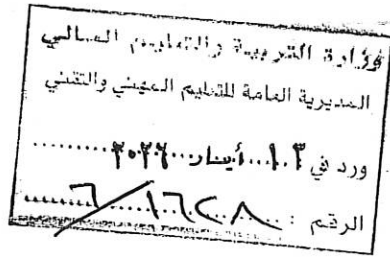 وزارة التربية والتعليم العالي
المديرية العامة للتعليم المهني والتقني
ورد في ١٣ أيار ٢٠٢٦
الرقم : ١٦٢٨ / ٦